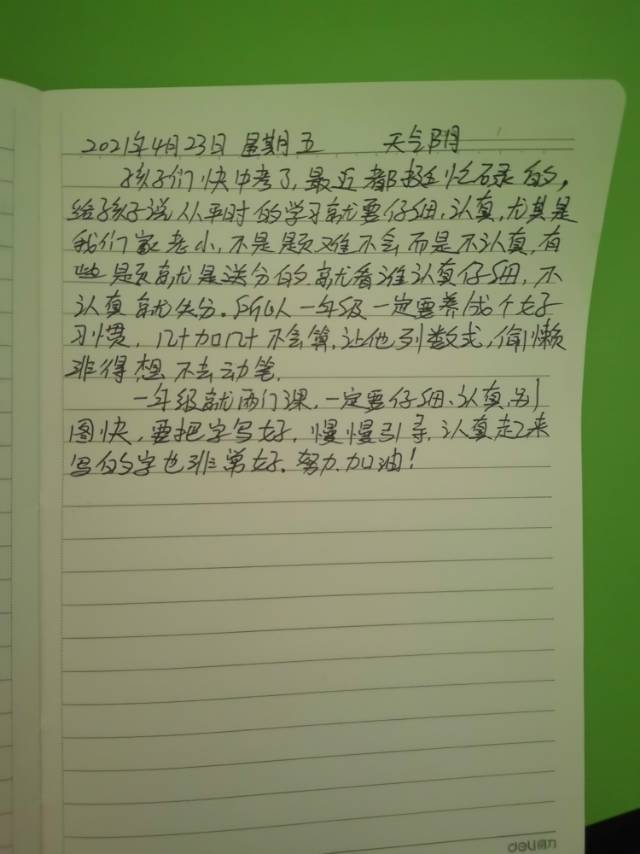 2021年4月23日 星期五 天气阴
孩子们快中考了,最近都挺忙碌的,
给孩子说从平时的学习就要仔细、认真,尤其是
我们家老小,不是题难不会而是不认真,有
些题就是送分的就看谁认真仔细,不
认真就失分。所以一年级一定要养成个好
习惯,几十加几十不会算,让他列数式,偷懒
非得想不去动笔。
一年级就两门课,一定要仔细、认真,别
图快,要把字写好,慢慢引导,认真起来
写的字也非常好。努力加油!
deli得力